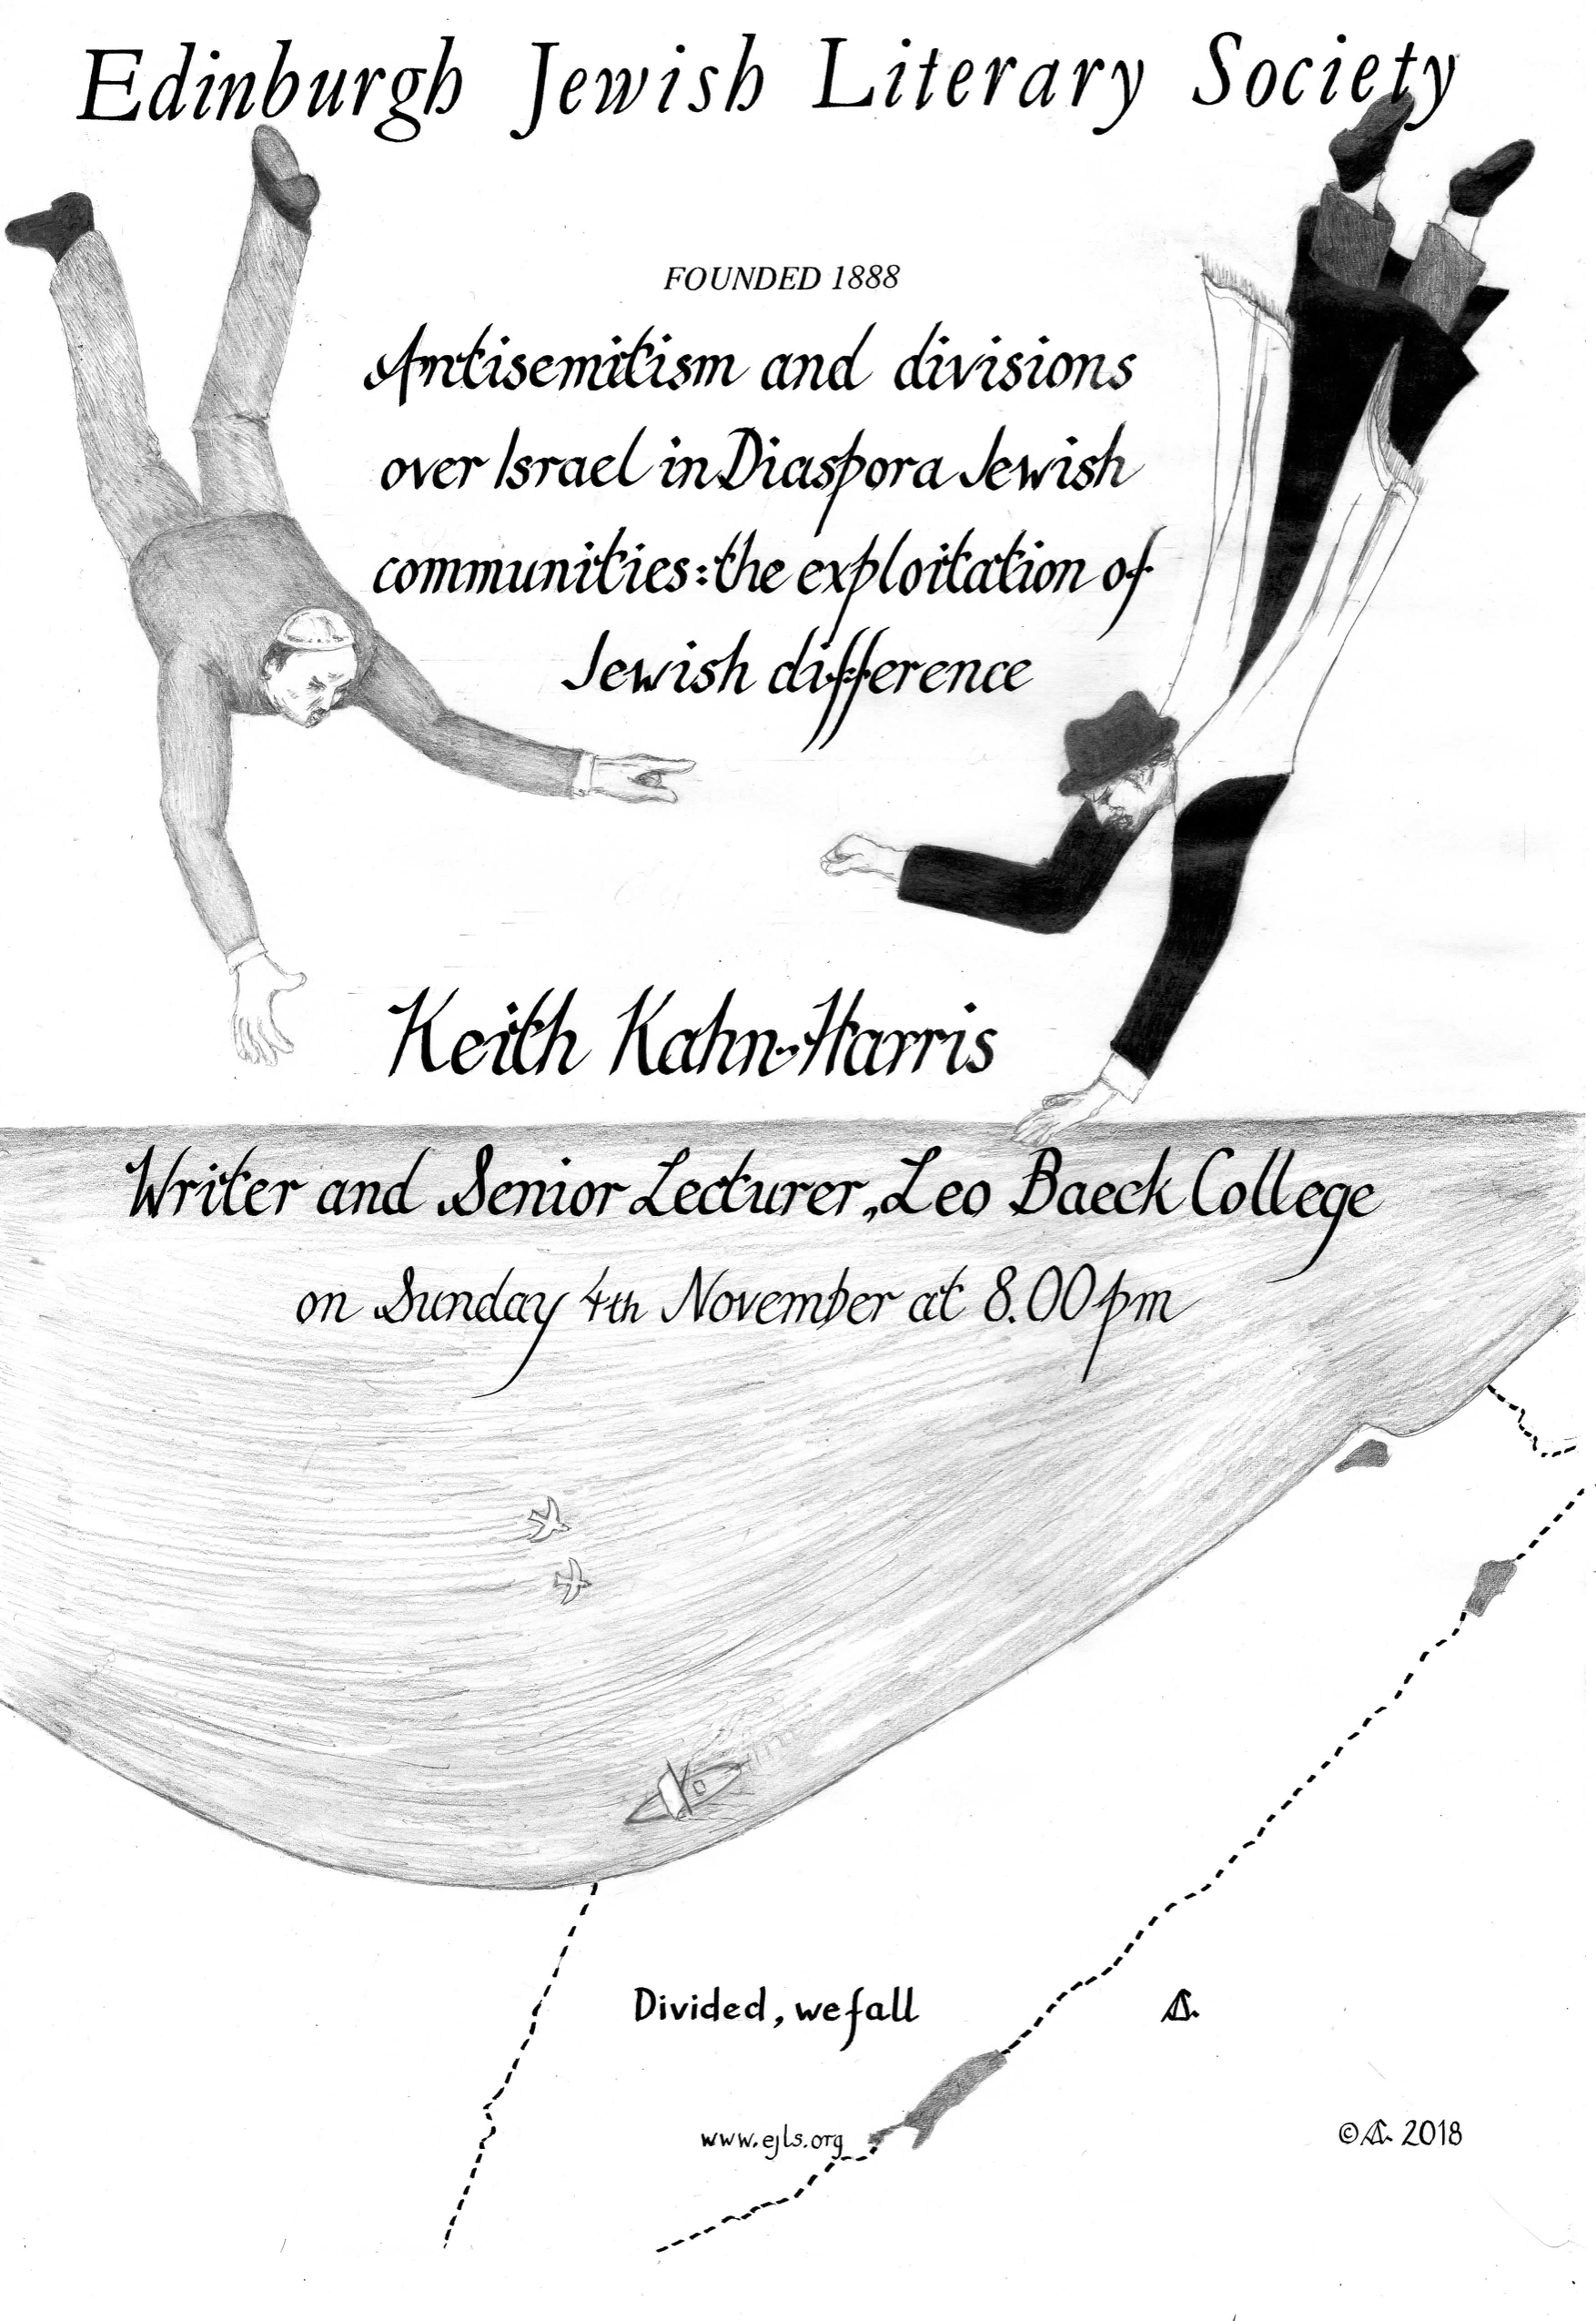 Edinburgh Jewish Literary Society
FOUNDED 1888
Antisemitism and divisions
over Israel in Diaspora Jewish
communities: the exploitation of
Jewish difference
Keith Kahn-Harris
Writer and Senior Lecturer, Leo Baeck College
on Sunday 4th November at 8.00pm
Divided, we fall
www.ejls.org
© 2018